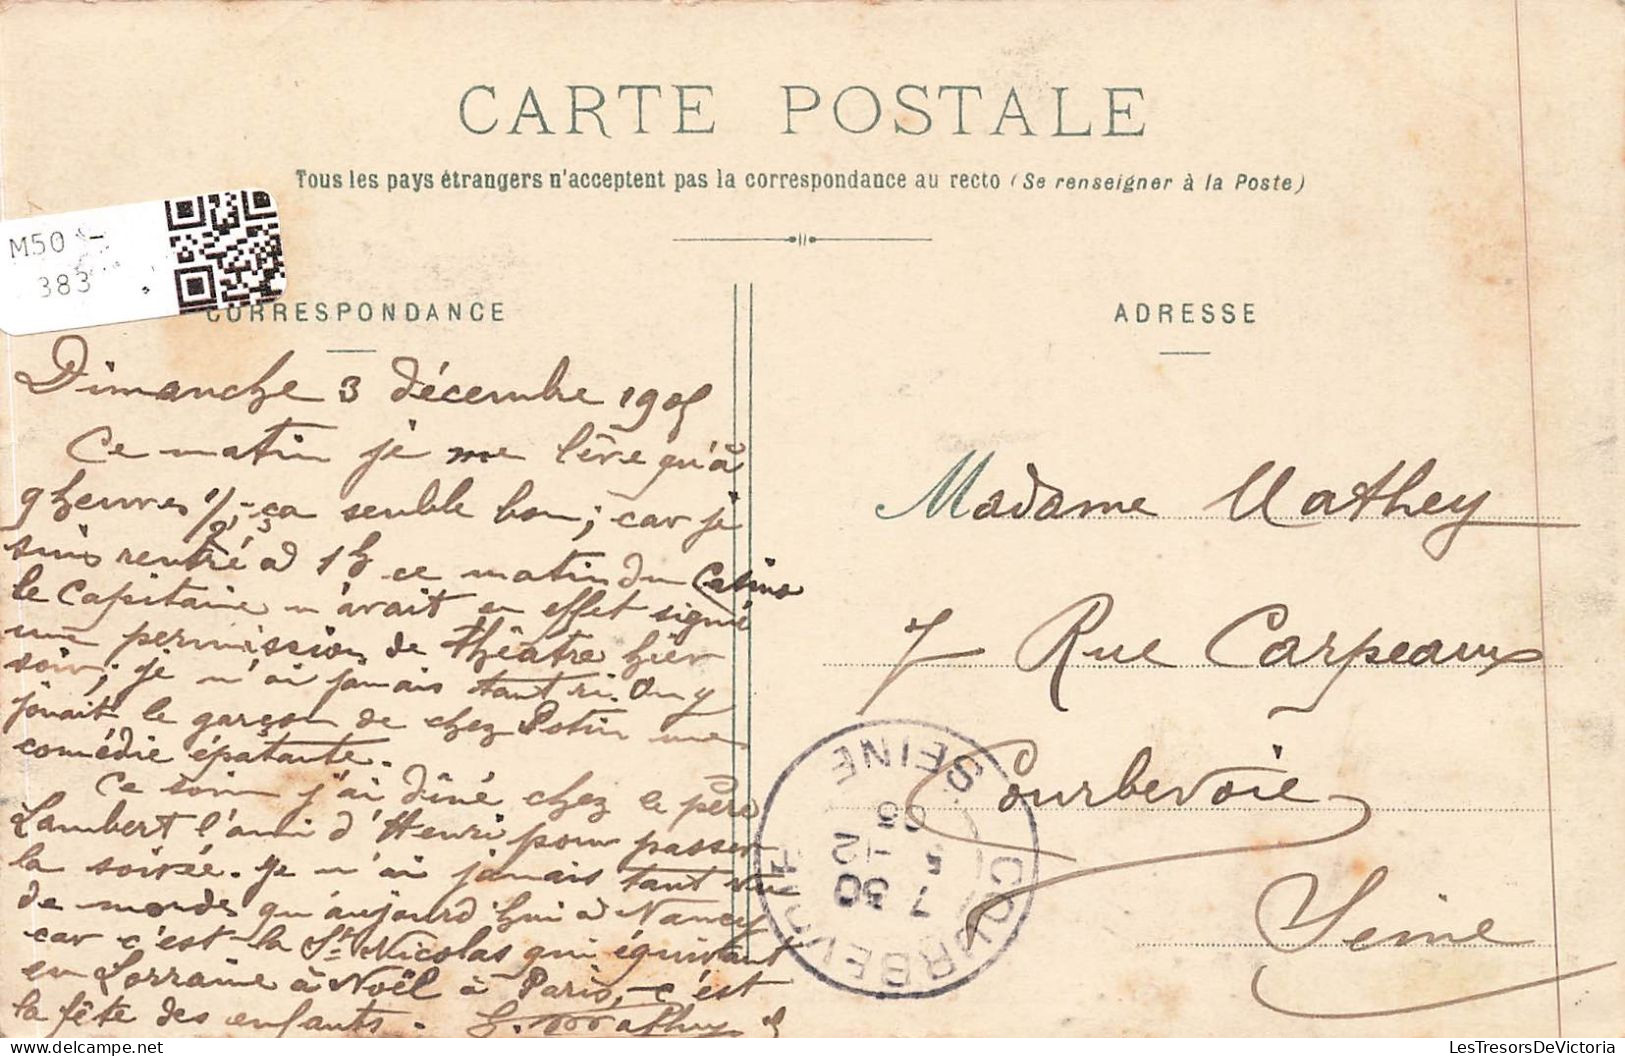 CARTE POSTALE
Tous les pays étrangers n'acceptent pas la correspondance au recto (Se renseigner à la Poste)
M50 -
383
CORRESPONDANCE
Dimanche 3 décembre 1905
Ce matin je me lève qu'à
9 heures 1/2, ça semble bon; car je
suis rentré à 1h ce matin du Casino
le Capitaine m'avait en effet signé
une permission de Théâtre hier
soir; je n'ai jamais tant ri. On y
jouait le garçon de chez Potin une
comédie épatante.
Ce soir j'ai dîné chez le père
Lambert l'ami d'Henri pour passer
la soirée. Je n'ai jamais tant vu
de monde qu'aujourd'hui à Nancy
car c'est la St Nicolas qui équivaut
en Lorraine à Noël à Paris, c'est
la fête des enfants. Mathey
ADRESSE
Madame Mathey
7 Rue Carpeaux
Courbevoie
Seine
COURBEVOIE
SEINE
7 30
5 -12
05
LesTresorsDeVictoria.com